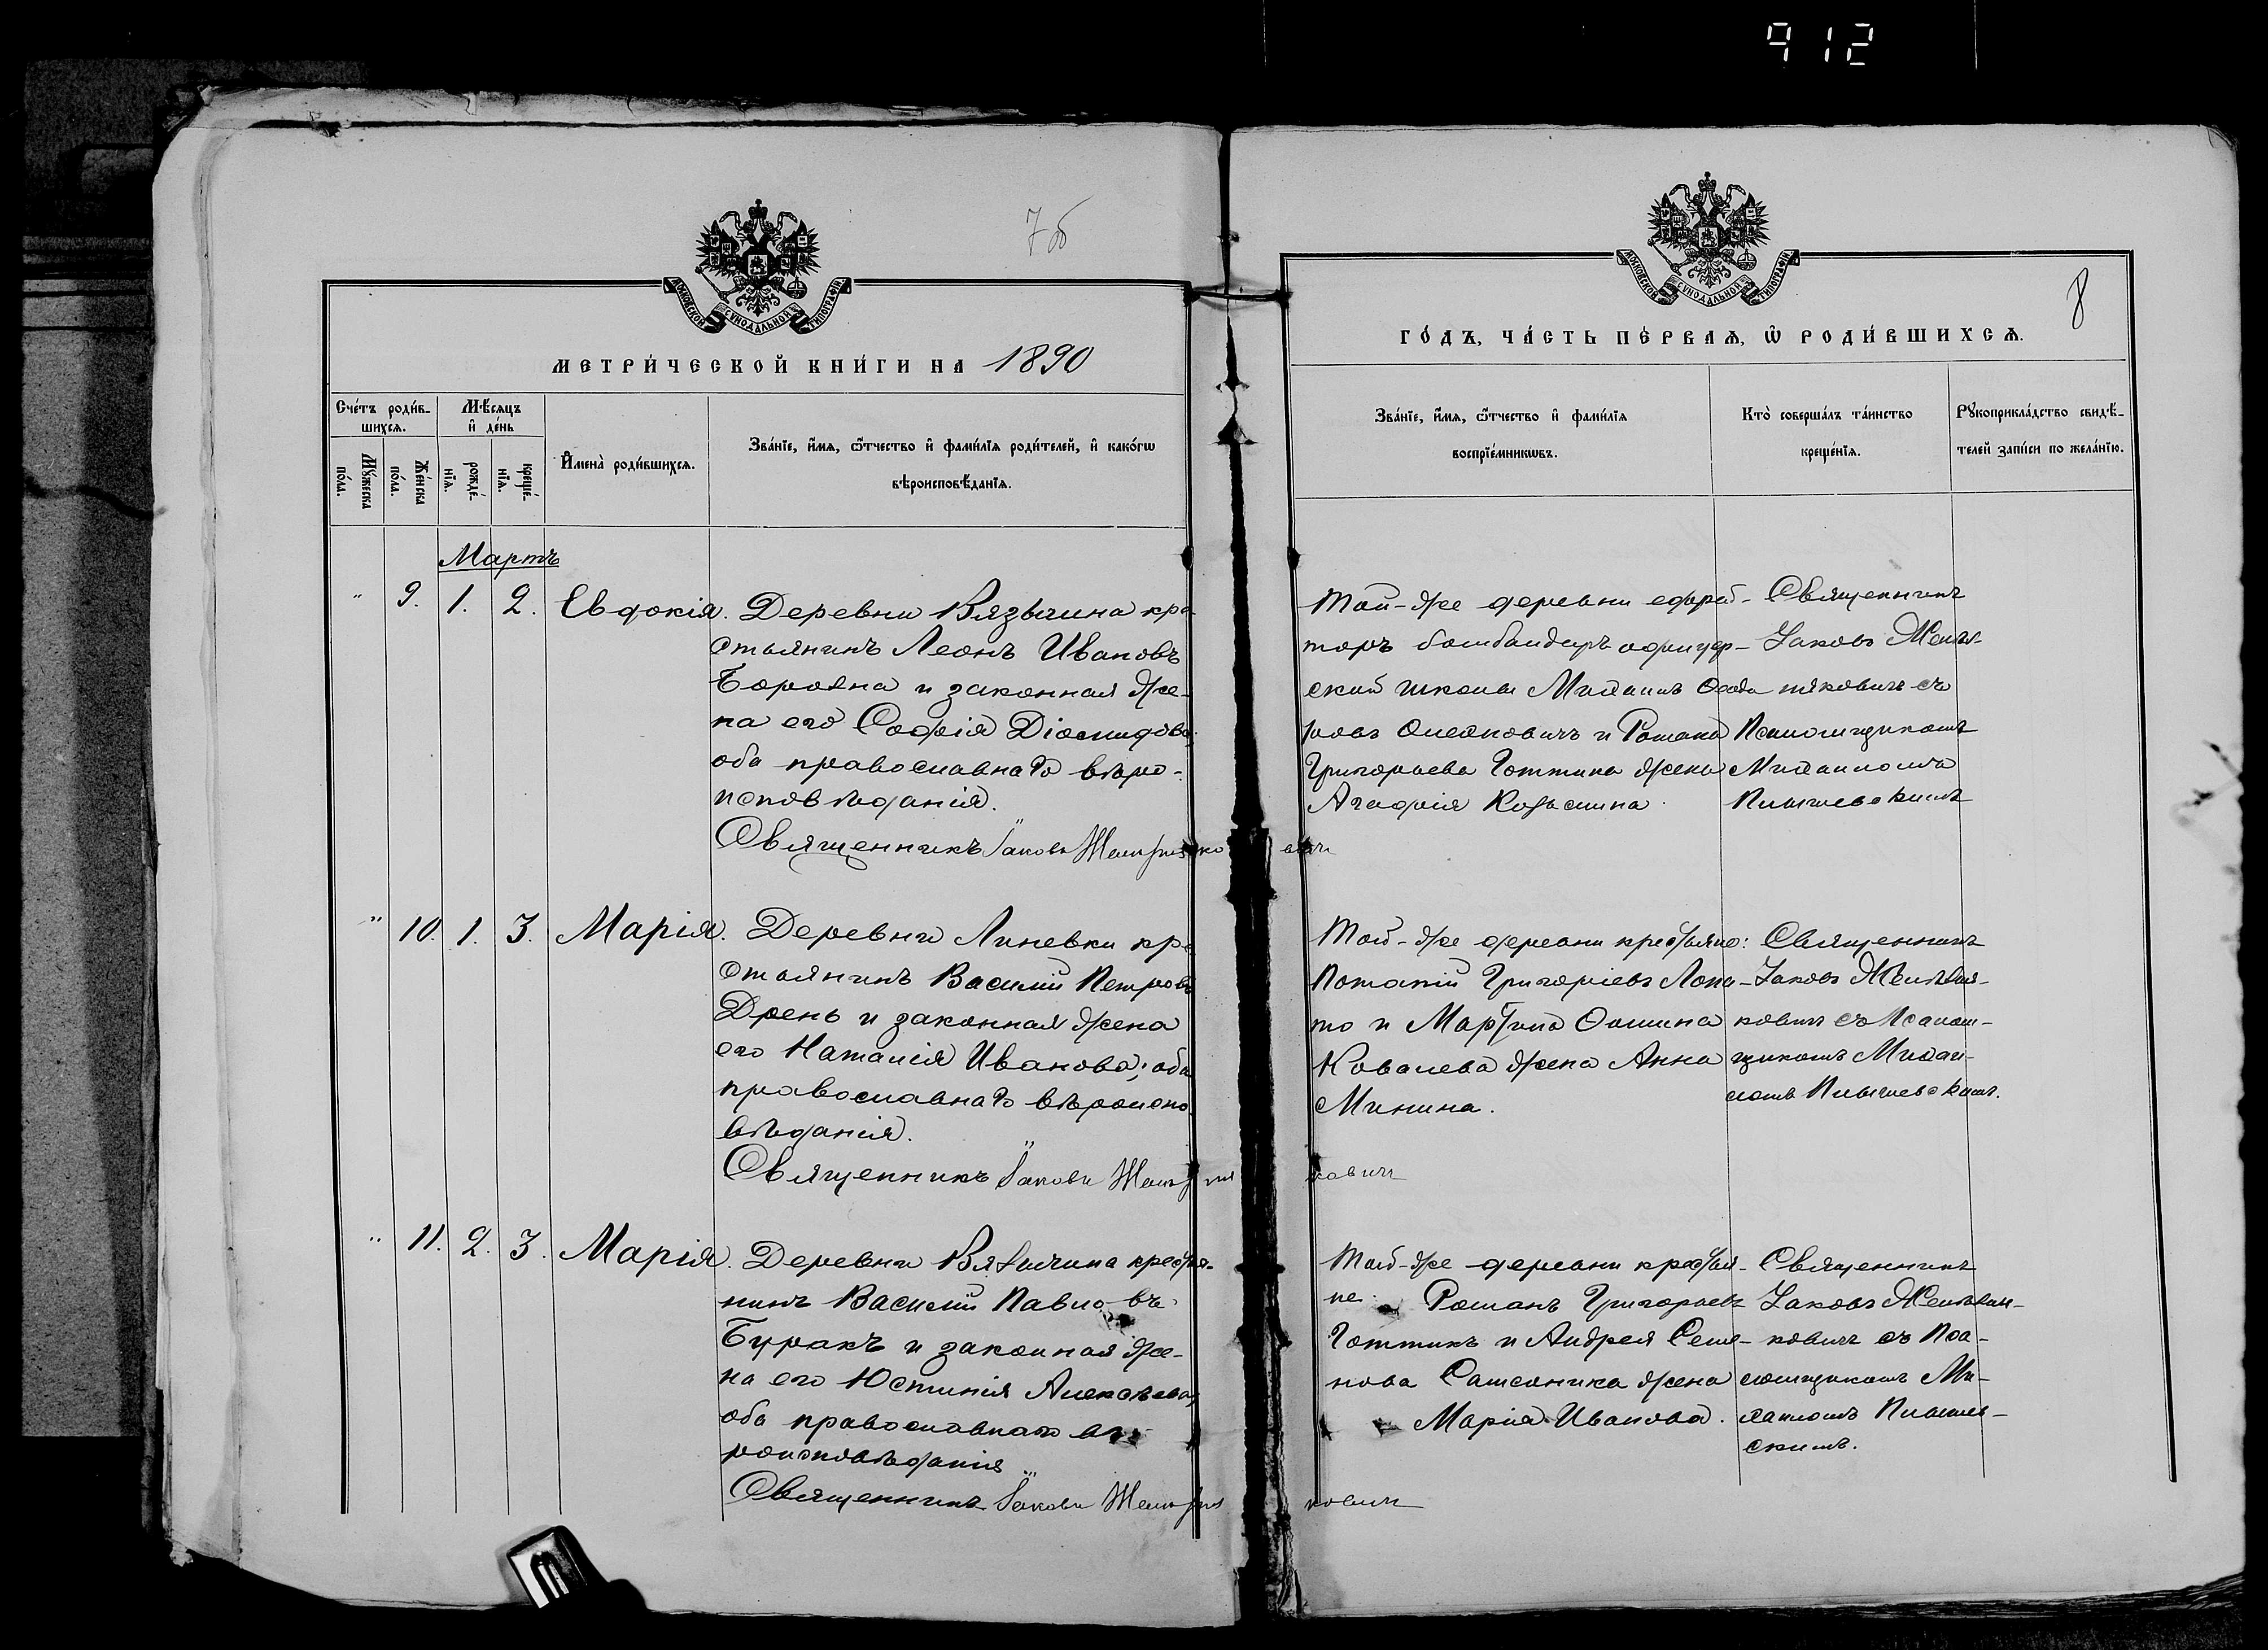 912
7б
МОСКОВСКОЙ СѴНОДАЛЬНОЙ ТИПОГРАФІИ
МЕТРИ́ЧЕСКОЙ КНИ́ГИ НА 1890
Сче́тъ роди́в-
шихсѧ.
Мѣ́сѧцъ
и҆ де́нь
Мꙋ́жеска
по́ла.
Же́нска
по́ла.
рожде́-
нїѧ.
креще́-
нїѧ.
И҆мена̀ роди́вшихсѧ.
Зва́нїе, и҆́мѧ, ѻ҆́тчество и҆ фами́лїѧ роди́телей, и҆ како́гѡ
вѣроисповѣ́данїѧ.
Мартъ
" 9. 1. 2. Евдокія. Деревни Вязычина кре
стьянинъ Леонъ Ивановъ
Боровна и законная же-
на его Софія Діомидова;
оба православнаго вѣро-
исповѣданія.
Священникъ Іаковъ
" 10. 1. 3. Марія. Деревни Линевки кре
стьянинъ Василій Петровъ
Дрень и законная жена
его Наталія Иванова; оба
православнаго вѣроиспо
вѣданія.
Священникъ Іаковъ
" 11. 2. 3. Марія. Деревни крестья-
нинъ Василій Павло-въ
Буракъ и законная же-
на его Юстинія Алексѣева,
оба православнаго вѣ-
роисповѣданія
Священникъ Іаковъ
8
МОСКОВСКОЙ СѴНОДАЛЬНОЙ ТИПОГРАФІИ
ГО́ДЪ, ЧА́СТЬ ПЕ́РВАѦ, Ѡ҆ РОДИ́ВШИХСѦ.
Зва́нїе, и҆́мѧ, ѻ҆́тчество и҆ фами́лїѧ
воспрїе́мникѡвъ.
Кто̀ соверша́лъ та́инство
креще́нїѧ.
Рꙋкоприкла́дство свидѣ́-
телей за́писи по жела́нїю.
Той-же деревни ефрей-
торъ бомбандиръ офицер-
ской школы Михаилъ
и Романа
Григорьева Готтина жена
Агафія Козьмина.
Священникъ
Іаковъ
съ
Псаломщикомъ
Михаиломъ
Той-же деревни крестьяне:
Потапій Григоріевъ Лопа-
то и Мартина Ѳомина
Ковалева жена Анна
Минина.
Священникъ
Іаковъ
съ Псалом-
щикомъ Михаи-
ломъ
Той-же деревни крестья-
не: Романъ Григорьевъ
Готтинъ и Андрея Семе-
нова Самсоника жена
Марія Иванова.
Священникъ
Іаковъ
ковичъ съ Пса-
ломщикомъ Ми-
хаиломъ
скимъ.